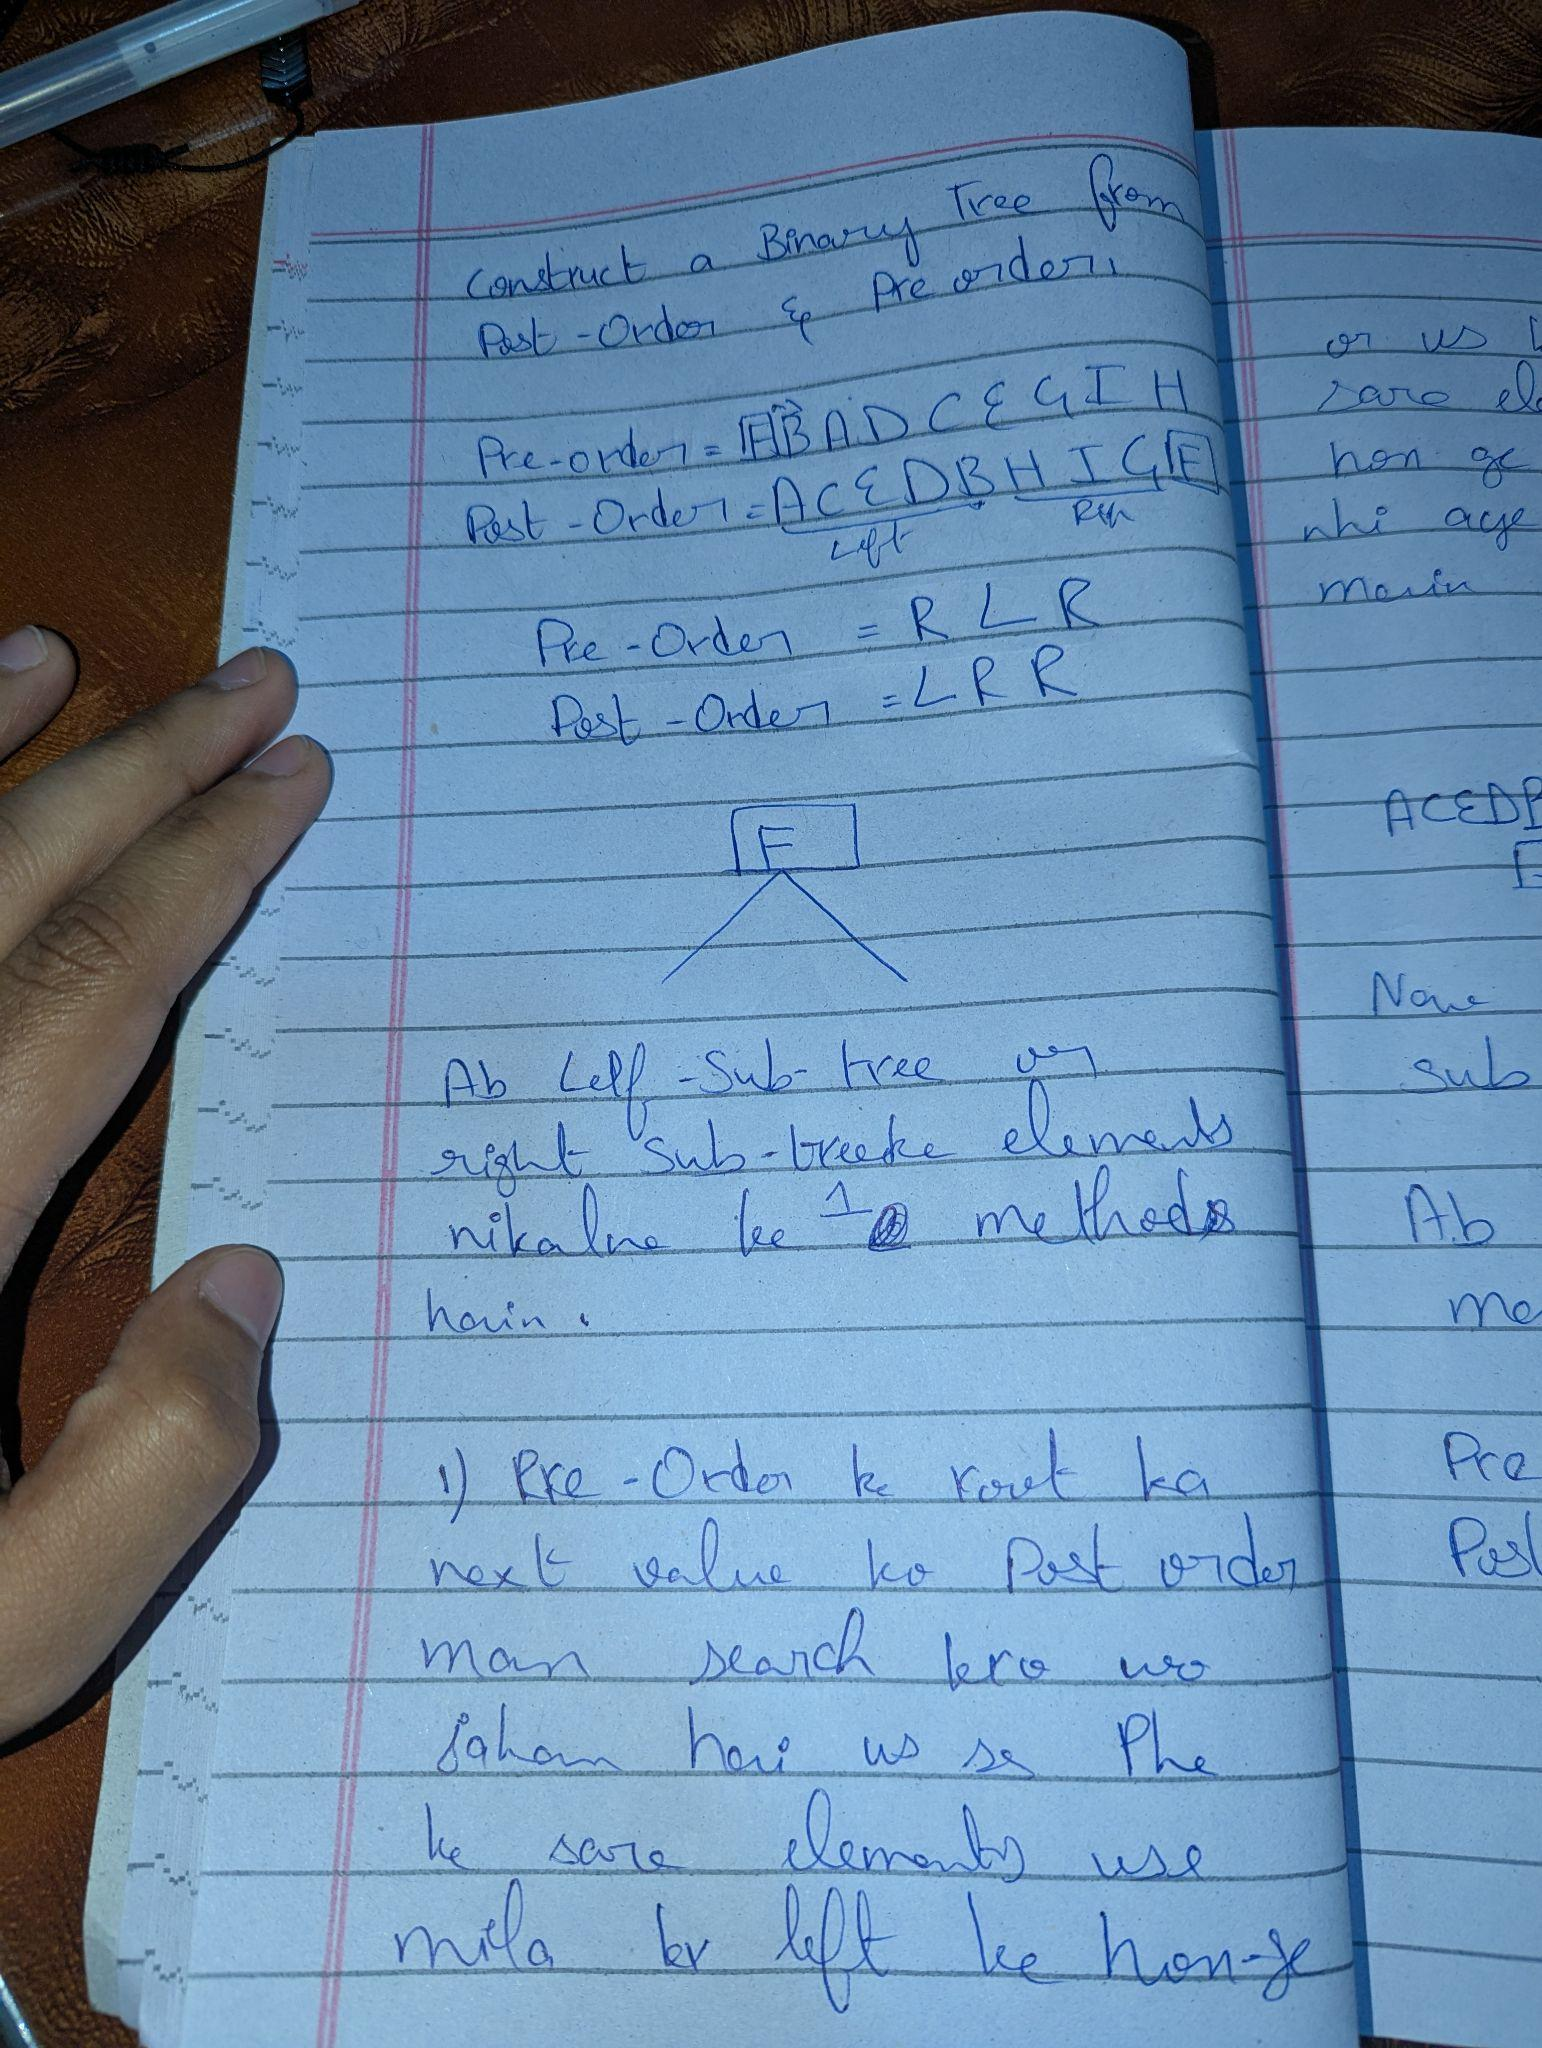 Construct a Binary Tree from
Post-Order & Pre order,
Pre-order = F B A D C E G I H
Post-Order = A C E D B H I G F
Left
Pre-Order = R L R
Post-Order = L R R
F
Ab Left-Sub-tree or
right sub-tree ke elements
nikalne ke 1 methods
hain.
1) Pre-Order ke root ka
next value ko Post order
man search kro wo
jahan hai us se Phe
ke sare elements use
mila kr left ke hon-ge
or us
sare ele
hon ge
nhi aye
main
ACEDB
Now
sub
Ab
me
Pre
Post